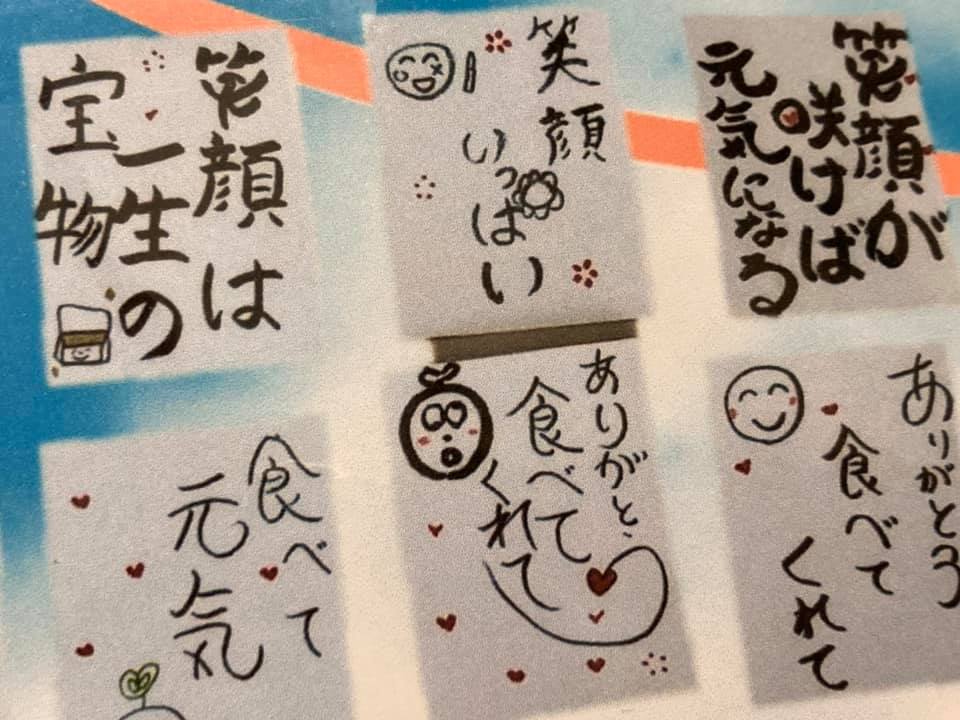 笑顔は
一生の
宝物
笑顔
いっぱい
笑顔が
咲けば
元気になる
食べて
元気
ありがと
食べて
くれて
ありがとう
食べて
くれて